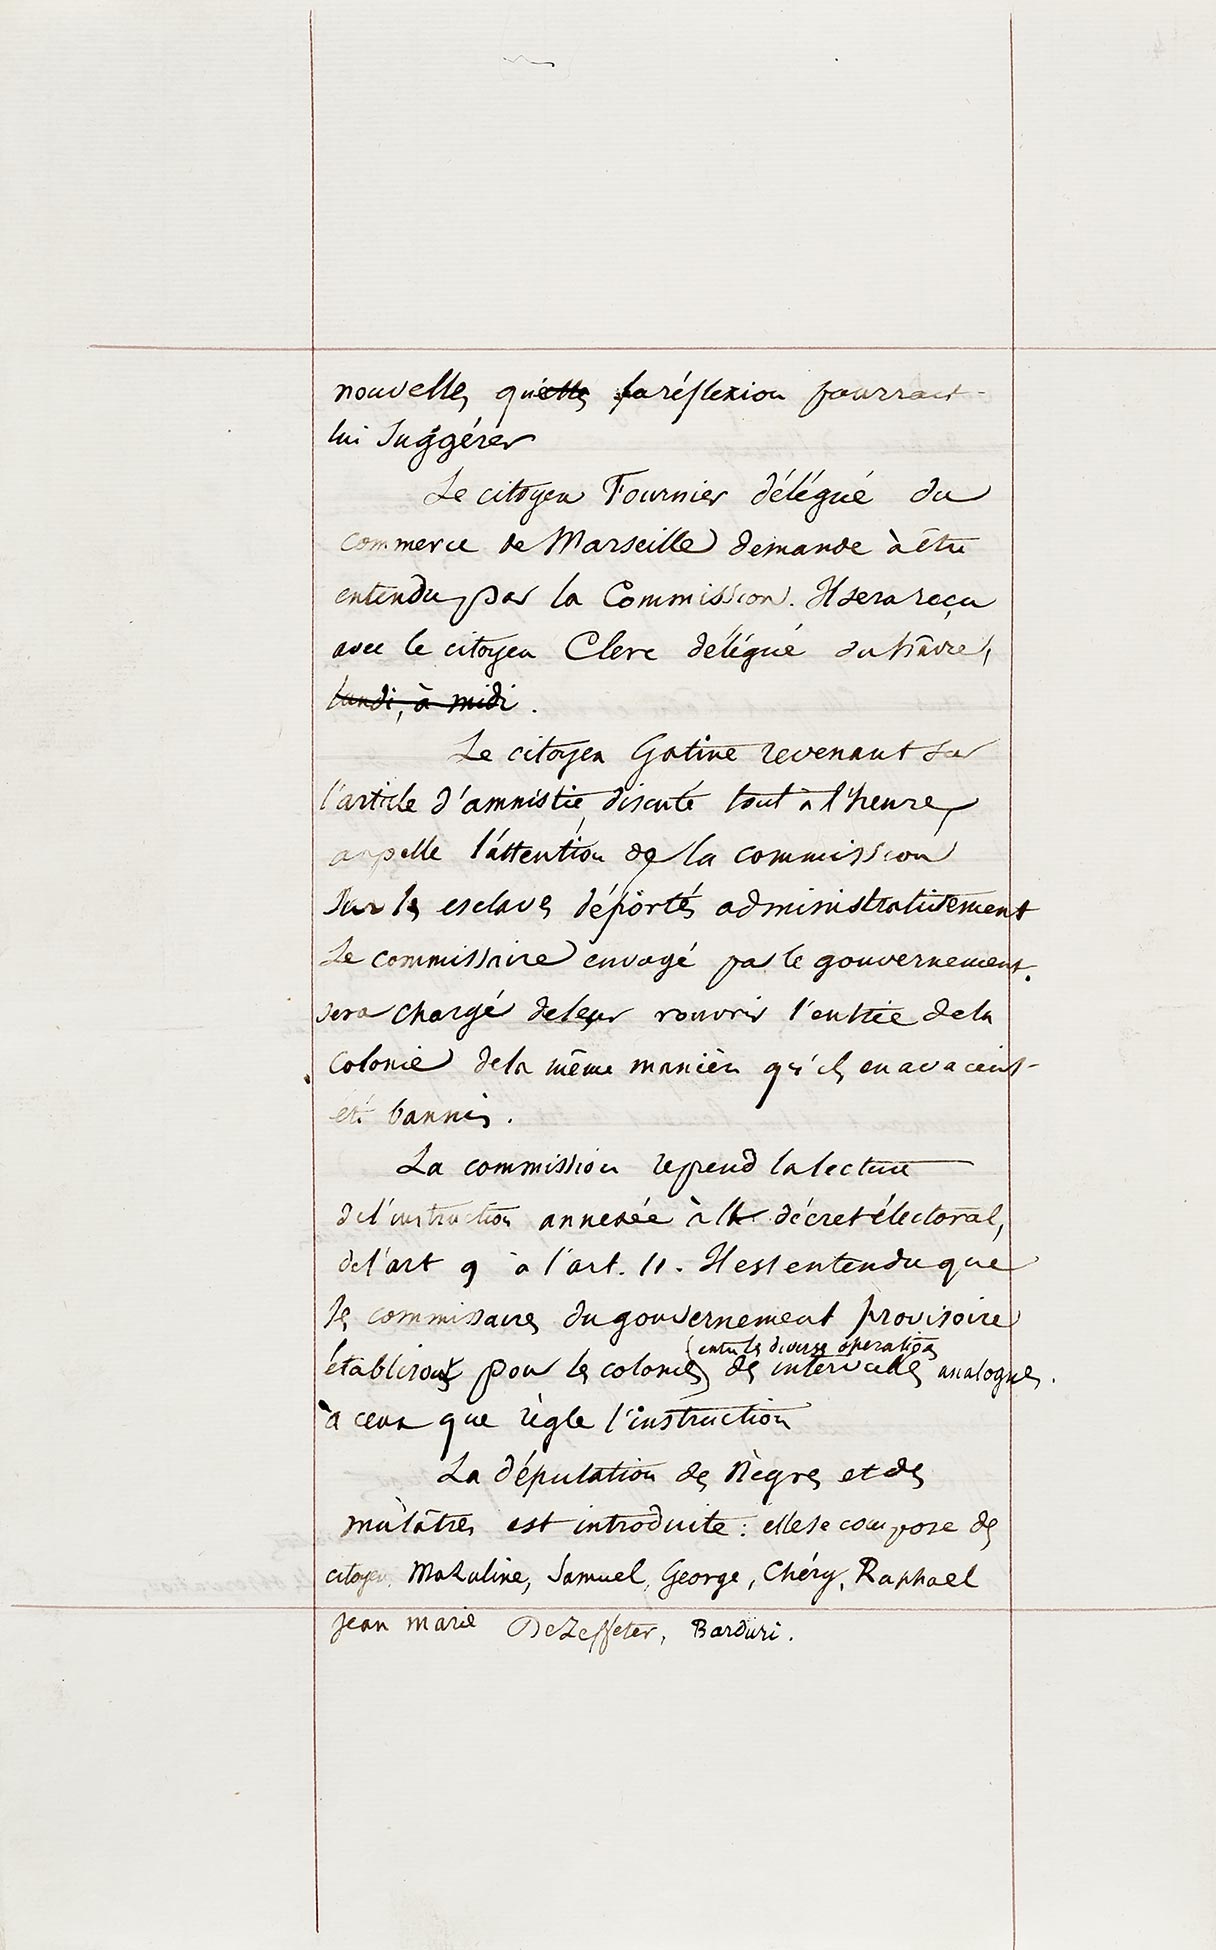 nouvelles qu'elles la réflexion pourrait
lui suggérer
Le citoyen Fournier délégué du
commerce de Marseille demande à être
entendu par la Commission. Il sera reçu
avec le citoyen Clerc délégué du hâvre,
lundi, à midi.
Le citoyen Gatine revenant sur
l'article d'amnistie, discuté tout à l'heure,
appelle l'attention de la commission
sur les esclaves déportés administrativement
Le commissaire envoyé par le gouvernement.
sera chargé de leur rouvrir l'entrée de la
colonie de la même manière qu'ils en avaient
été bannis.
La commission reprend la lecture
de l'instruction annexée à le décret électoral,
de l'art 9 à l'art. 11. Il est entendu que
les commissaires du gouvernement provisoire
(entre les diverses opérations
établiront pour les colonies) des intervalles analogues.
à ceux que règle l'instruction
La députation des Nègres et des
mulâtres est introduite : elle se compose des
citoyens Mazuline, Samuel, George, Chéry, Raphael
jean marie Dezeffeter, Barduri.